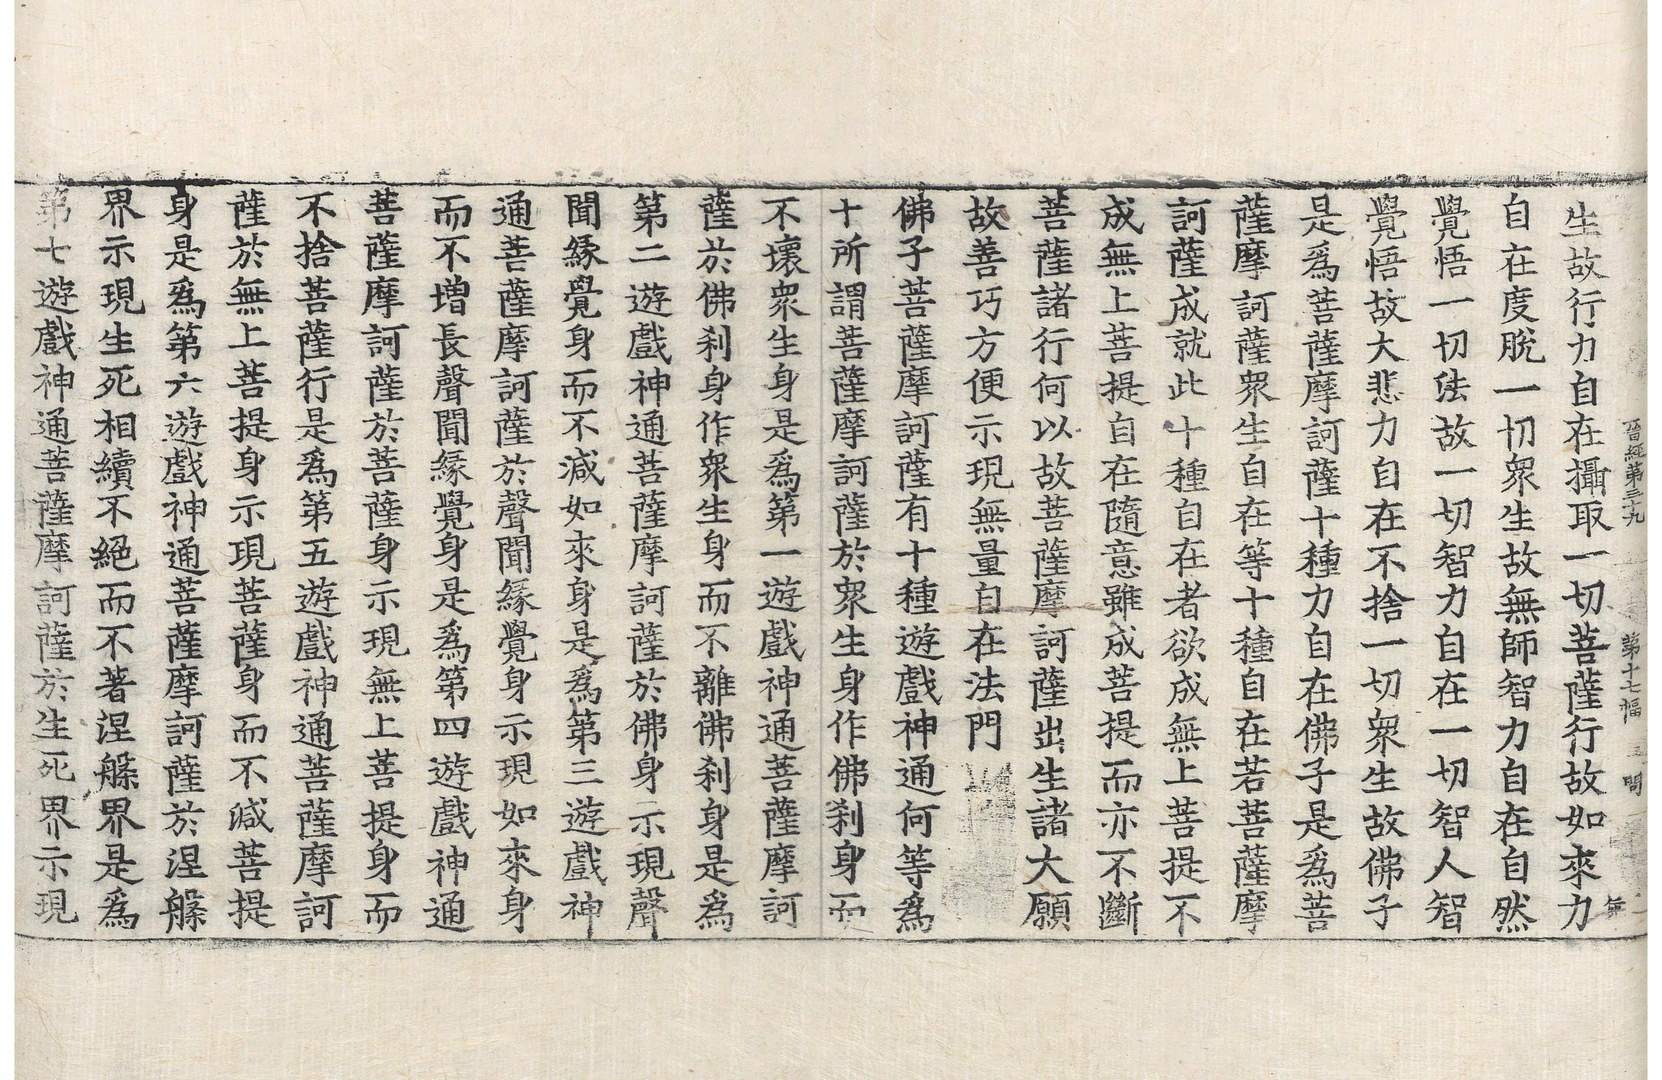 晉經第三十九　第十七幅
生故行力自在攝取一切菩薩行故如來力
自在度脫一切衆生故無師智力自在自然
覺悟一切法故一切智力自在一切智人智
覺悟故大悲力自在不捨一切衆生故佛子
是爲菩薩摩訶薩十種力自在佛子是爲菩
薩摩訶薩衆生自在等十種自在若菩薩摩
訶薩成就此十種自在者欲成無上菩提不
成無上菩提自在隨意雖成菩提而亦不斷
菩薩諸行何以故菩薩摩訶薩出生諸大願
故善巧方便示現無量自在法門
佛子菩薩摩訶薩有十種遊戲神通何等爲
十所謂菩薩摩訶薩於衆生身作佛刹身而
不壞衆生身是爲第一遊戲神通菩薩摩訶
薩於佛刹身作衆生身而不離佛刹身是爲
第二遊戲神通菩薩摩訶薩於佛身示現聲
聞緣覺身而不減如來身是爲第三遊戲神
通菩薩摩訶薩於聲聞緣覺身示現如來身
而不增長聲聞緣覺身是爲第四遊戲神通
菩薩摩訶薩於菩薩身示現無上菩提身而
不捨菩薩行是爲第五遊戲神通菩薩摩訶
薩於無上菩提身示現菩薩身而不減菩提
身是爲第六遊戲神通菩薩摩訶薩於涅槃
界示現生死相續不絕而不著涅槃界是爲
第七遊戲神通菩薩摩訶薩於生死界示現